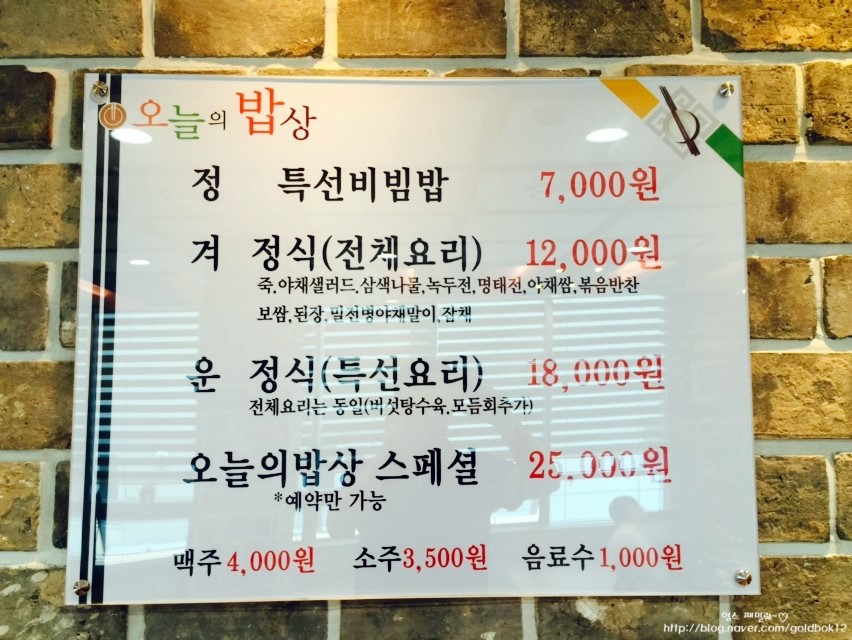 오늘의 밥상
정 특선비빔밥 7,000원
겨 정식(전체요리) 12,000원
죽,야채샐러드,삼색나물,녹두전,명태전,야채쌈,볶음반찬
보쌈,된장,밀전병야채말이,잡채
운 정식(특선요리) 18,000원
전체요리는 동일(버섯탕수육,모듬회추가)
오늘의밥상 스페셜 25,000원
*예약만 가능
맥주 4,000원 소주 3,500원 음료수 1,000원
http://blog.naver.com/goldbok12